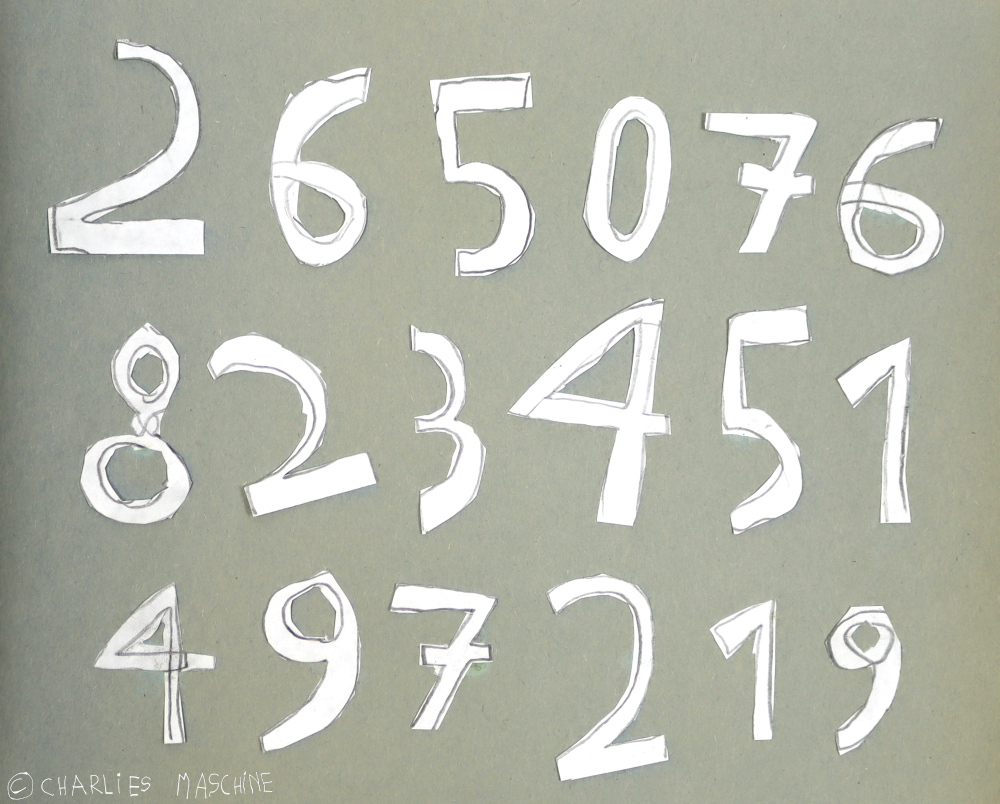 2 6 5 0 7 6
8 2 3 4 5 1
4 9 7 2 1 9
© CHARLiES MASCHiNE